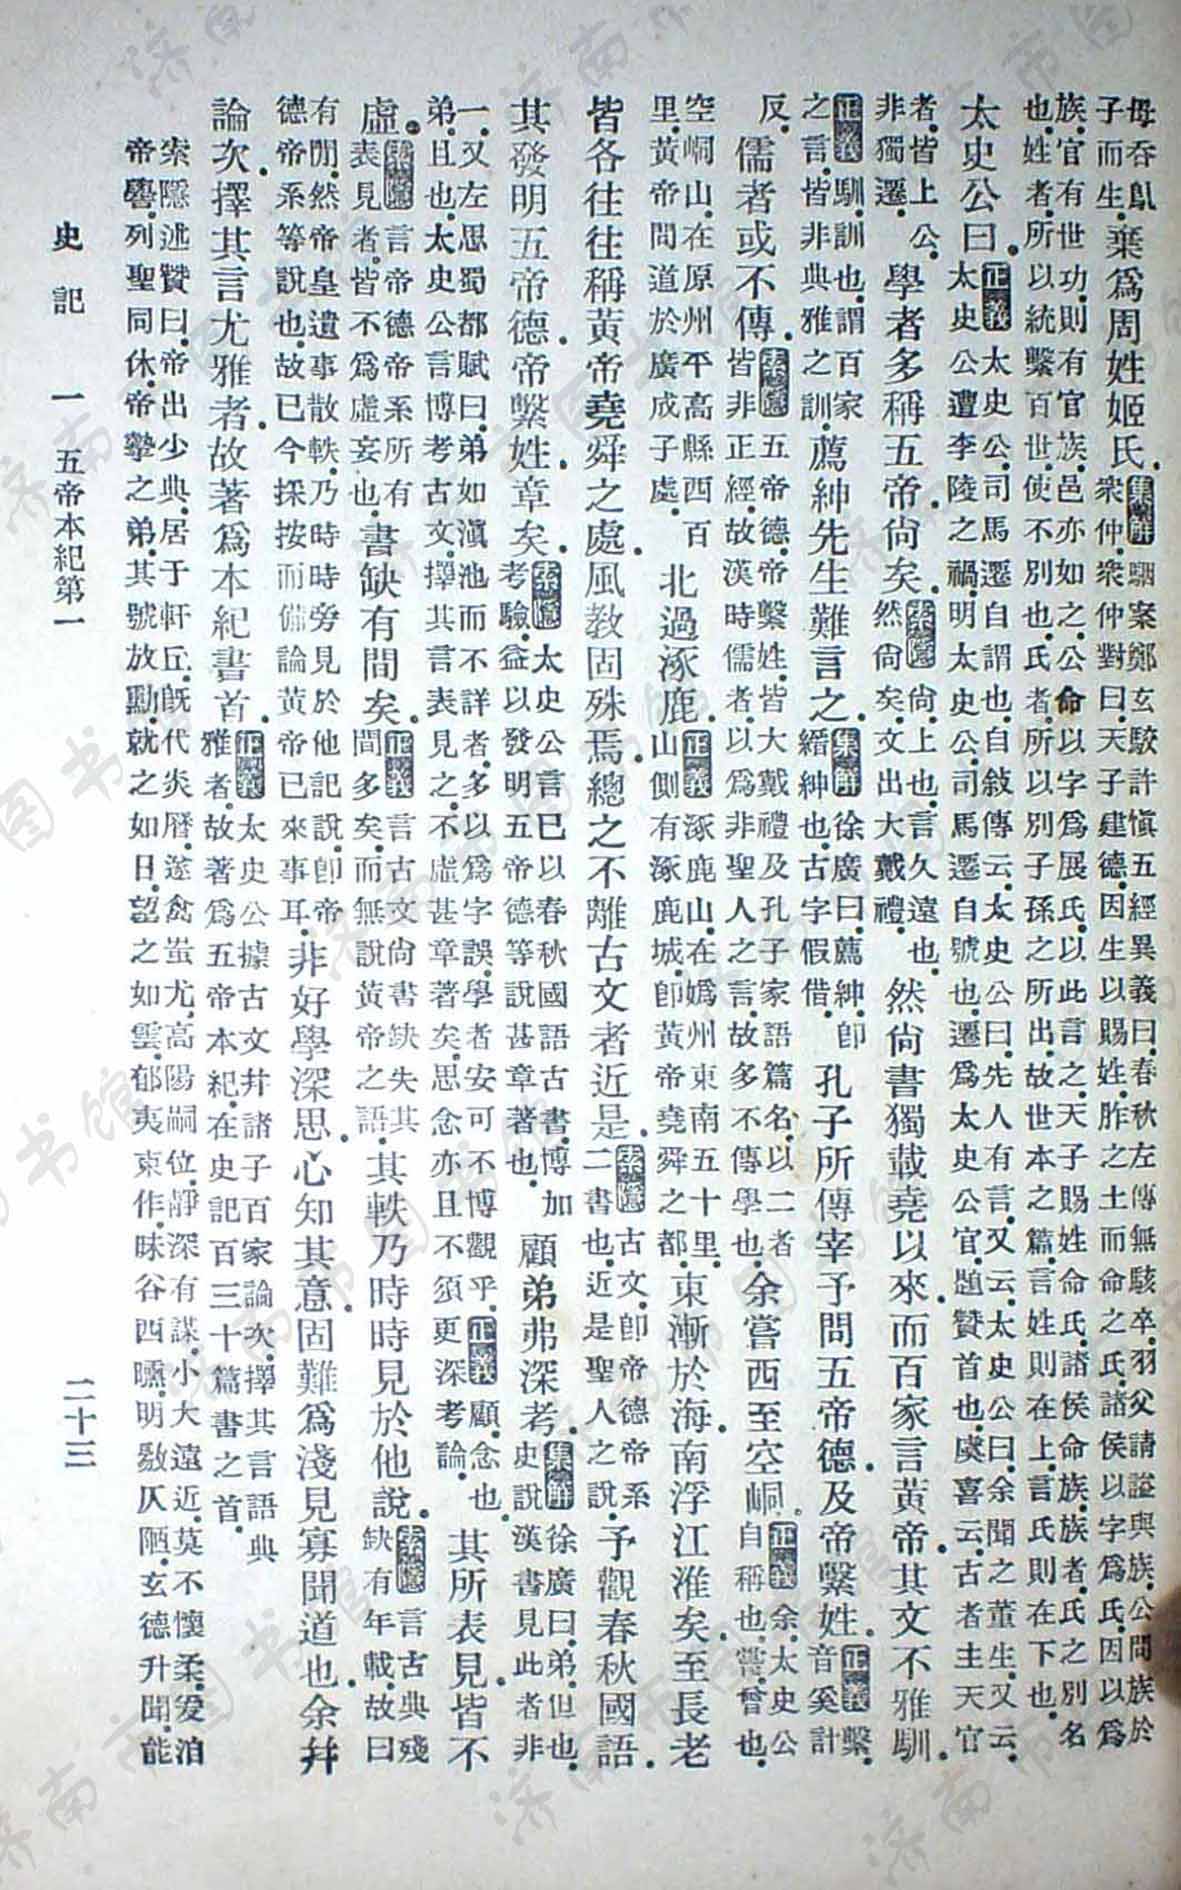 毋吞鳦子而生。棄爲周姓姬氏。集解駰案鄭玄駮許愼五經異義曰。春秋左傳無駭卒。羽父請謚與族。公問族於衆仲。衆仲對曰。天子建德。因生以賜姓。胙之土而命之氏。諸侯以字爲氏。因以爲
族。官有世功。則有官族。邑亦如之。公命以字爲展氏。以此言之。天子賜姓命氏。諸侯命族。族者。氏之別名也。姓者。所以統繫百世。使不別也。氏者。所以別子孫之所出。故世本之篇。言姓則在上。言氏則在下也。
太史公曰。正義太史公。司馬遷自謂也。自敍傳云。太史公曰。先人有言。又云。太史公曰。余聞之董生。又云。太史公遭李陵之禍。明太史公。司馬遷自號也。遷爲太史公官。題贊首也。虞喜云。古者主天官
者。皆上公。非獨遷。學者多稱五帝。尚矣。索隱尚。上也。言久遠也。然尚矣。文出大戴禮。然尚書獨載堯以來。而百家言黃帝。其文不雅馴。
正義馴。訓也。謂百家之言。皆非典雅之訓。薦紳先生難言之。集解徐廣曰。薦紳。卽縉紳也。古字假借。孔子所傳宰予問五帝德。及帝繫姓。正義繫。音奚計
反。儒者或不傳。索隱五帝德。帝繫姓。皆大戴禮及孔子家語篇名。以二者皆非正經。故漢時儒者。以爲非聖人之言。故多不傳學也。余嘗西至空峒。正義余。太史公自稱也。嘗。曾也。
空峒山。在原州平高縣西百里。黃帝問道於廣成子處。北過涿鹿。正義涿鹿山。在嬀州東南五十里。山側有涿鹿城。卽黃帝堯舜之都。東漸於海。南浮江淮矣。至長老
皆各往往稱黃帝堯舜之處。風教固殊焉。總之不離古文者近是。索隱古文。卽帝德帝系二書也。近是聖人之說。予觀春秋國語。
其發明五帝德。帝繫姓。章矣。索隱太史公言已以春秋國語古書。博加考驗。益以發明五帝德等說甚章著也。顧弟弗深考。集解徐廣曰。弟。但也。史說漢書見此者非
一。又左思蜀都賦曰。弟如滇池而不詳者。多以爲字誤。學者安可不博觀乎。正義顧。念也。弟。且也。太史公言博考古文。擇其言表見之。不虛甚章著矣。思念亦且不須更深考論。其所表見。皆不
虛。索隱言帝德帝系所有表見者。皆不爲虛妄也。書缺有間矣。正義言古文尚書缺失其間多矣。而無說黃帝之語。其軼乃時時見於他說。索隱言古典殘缺有年載。故曰
有閒。然帝皇遺事散軼。乃時時旁見於他記說。卽帝德帝系等說也。故已今採按而備論黃帝已來事耳。非好學深思。心知其意。固難爲淺見寡聞道也。余幷
論次。擇其言尤雅者。故著爲本紀書首。正義太史公據古文幷諸子百家論次。擇其言語典雅者。故著爲五帝本紀。在史記百三十篇書之首。
索隱述贊曰。帝出少典。居于軒丘。旣代炎曆。遂禽蚩尤。高陽嗣位。靜深有謀。小大遠近。莫不懷柔。爰洎
帝嚳。列聖同休。帝摯之弟。其號放勳。就之如日。望之如雲。郁夷東作。昧谷西曛。明敭仄陋。玄德升聞。能
史記　一　五帝本紀第一　二十三